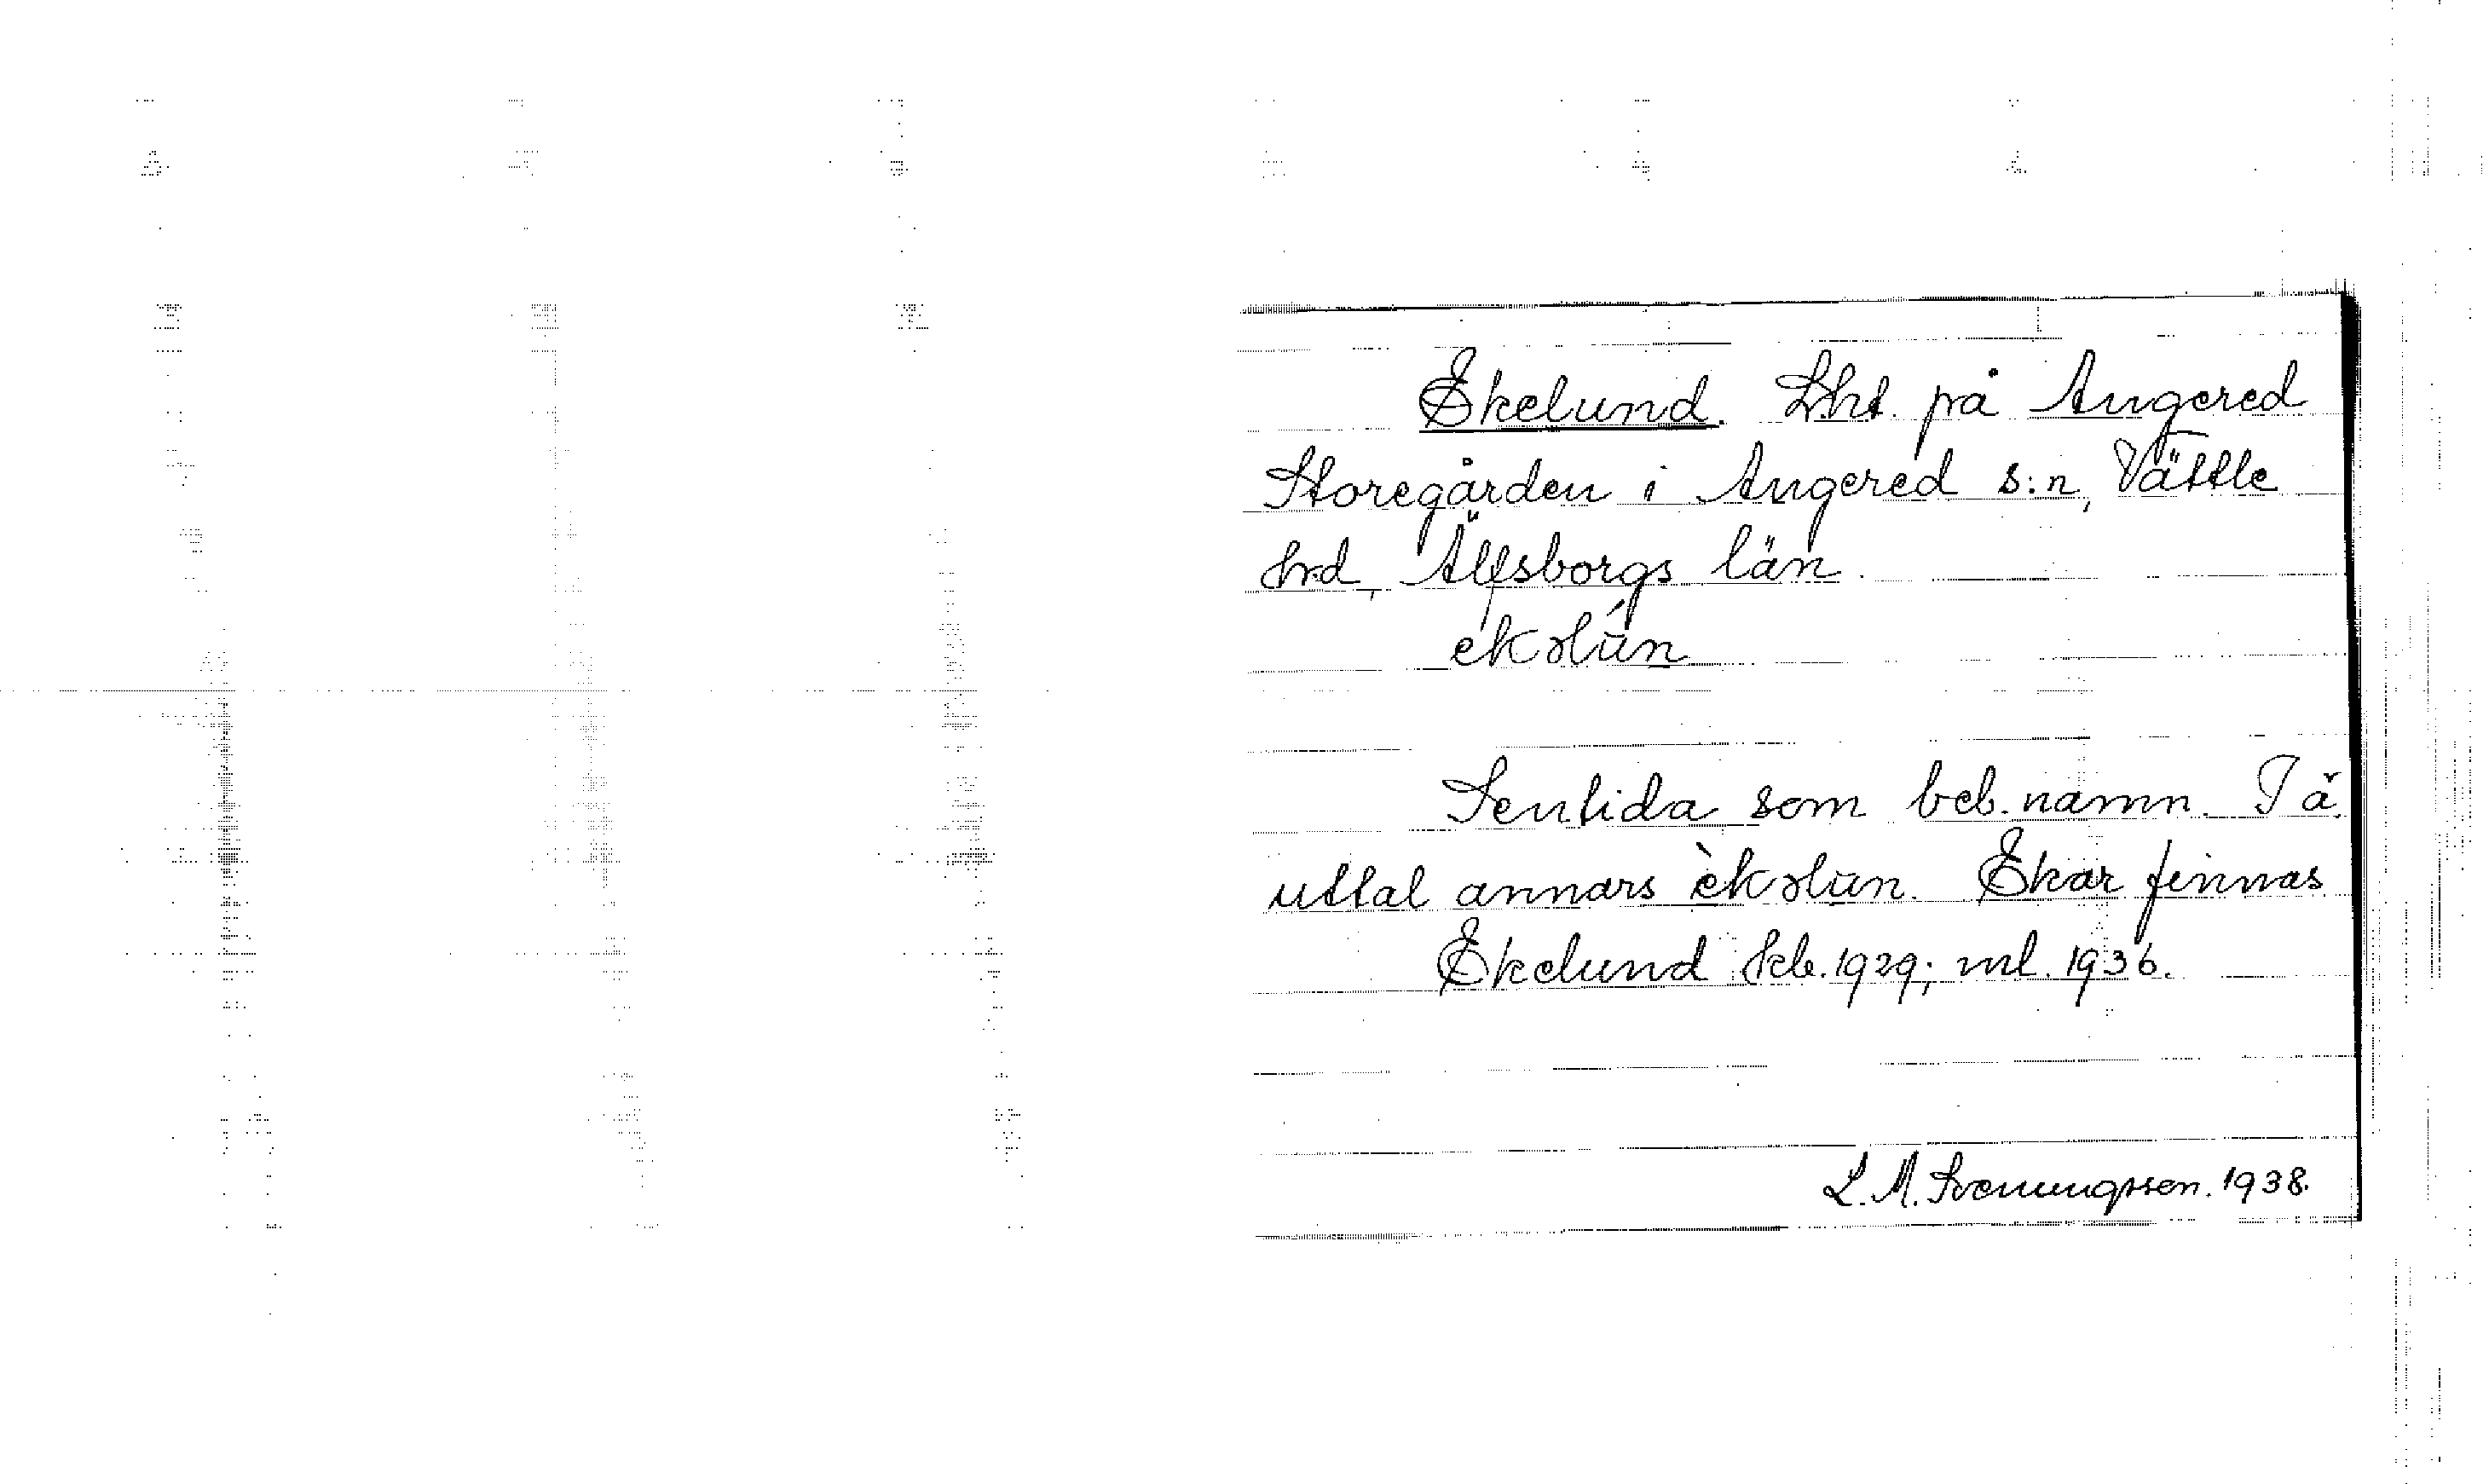 Ekelund. Lht. på Angered
Storegården i Angered s:n, Vättle
hrd, Älfsborgs län.
ekəlún
Sentida som beb. namn. I ä.
uttal annars èkəlun. Ekar finnas
Ekelund kb. 1929; ml. 1936.
L. M. Svenungsson. 1938.